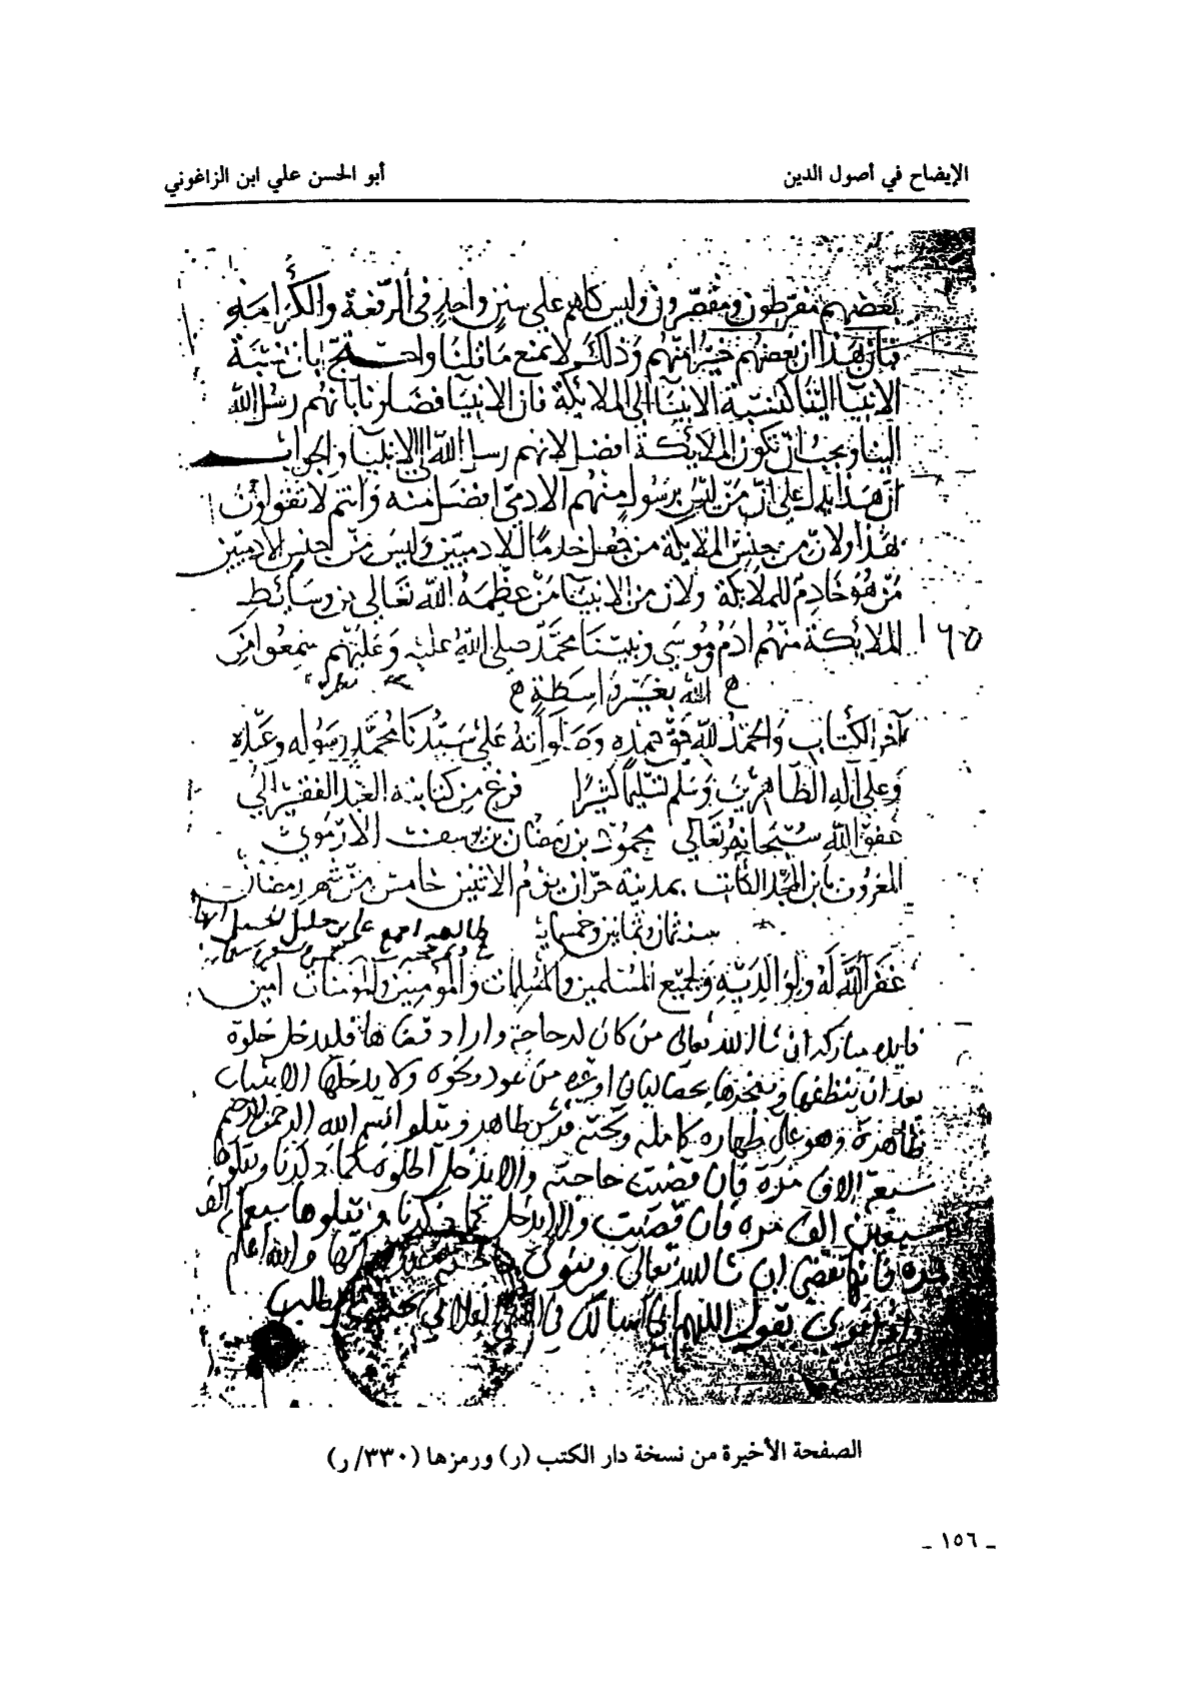 الإيضاح في أصول الدين
أبو الحسن علي ابن الزاغوني
بعضهم مفرطون ومقصرون وليس كلهم على سنن واحد في الرفعة والكرامة
فبان بهذا ان بعضهم خير امنهم وذلك لا يمنع ما قلنا واحتج بان نسبة
الانبيا الينا كنسبة الانبيا الى الملائكة فان الانبيا فضلونا بانهم رسل الله
الينا ويجب ان تكون الملائكة افضل لانهم رسل الله الى الانبيا والجواب
ان هذا يدل على ان من ليس برسول منهم الادمي افضل منه وانتم لا تقولون
بهذا ولان من جنس الملايكة من جعل خدما للادميين وليس من جنس الادميين
من هو خادم للملايكة ولان من الانبيا من عظمه الله تعالى بن وسائط
الملائكة منهم ادم وموسى ونبينا محمد صلى الله عليه وعليهم سمعوا من
١٦٥
الله بغير واسطة
آخر الكتاب والحمد لله حق حمده وصلواته على سيدنا محمد رسوله وعبده
وعلى آله الطاهرين وسلم تسليما كثيرا فرغ من كتابته العبد الفقير الى
عفو الله سبحانه وتعالى محمود بن رمضان بن يوسف الارموي
المعروف بابن المجد الكاتب بمدينة حران يوم الاثنين خامس من شهر رمضان
سنة ثمان وثمانين وخمسماية
طالعه اجمع علي بن خليل
غفر الله له ولوالديه ولجميع المسلمين والمسلمات والمؤمنين والمؤمنات امين
فايده مباركه ان شا الله تعالى من كان له حاجة واراد قضاها فليدخل خلوة
بعد ان ينظفها ويبخرها بحصالبان او شي من عود ونحوه ولا يدخلها الا بثياب
طاهرة وهو على طهاره كاملة وتحته فرش طاهر ويتلوا بسم الله الرحمن الرحيم
سبعة الاف مرة فان قضيت حاجته والا يدخل الخلوه كما ذكرنا ويتلوها
سبعين الف مره فان قضيت والا يدخل كما ذكرنا ويتلوها سبعماية الف
مره فانها تقضى ان شا الله تعالى وينوي والله اعلم
يقول اللهم اني اسالك في الطلب
الصفحة الأخيرة من نسخة دار الكتب (ر) ورمزها (٣٣٠/ر)
ـ ١٥٦ ـ